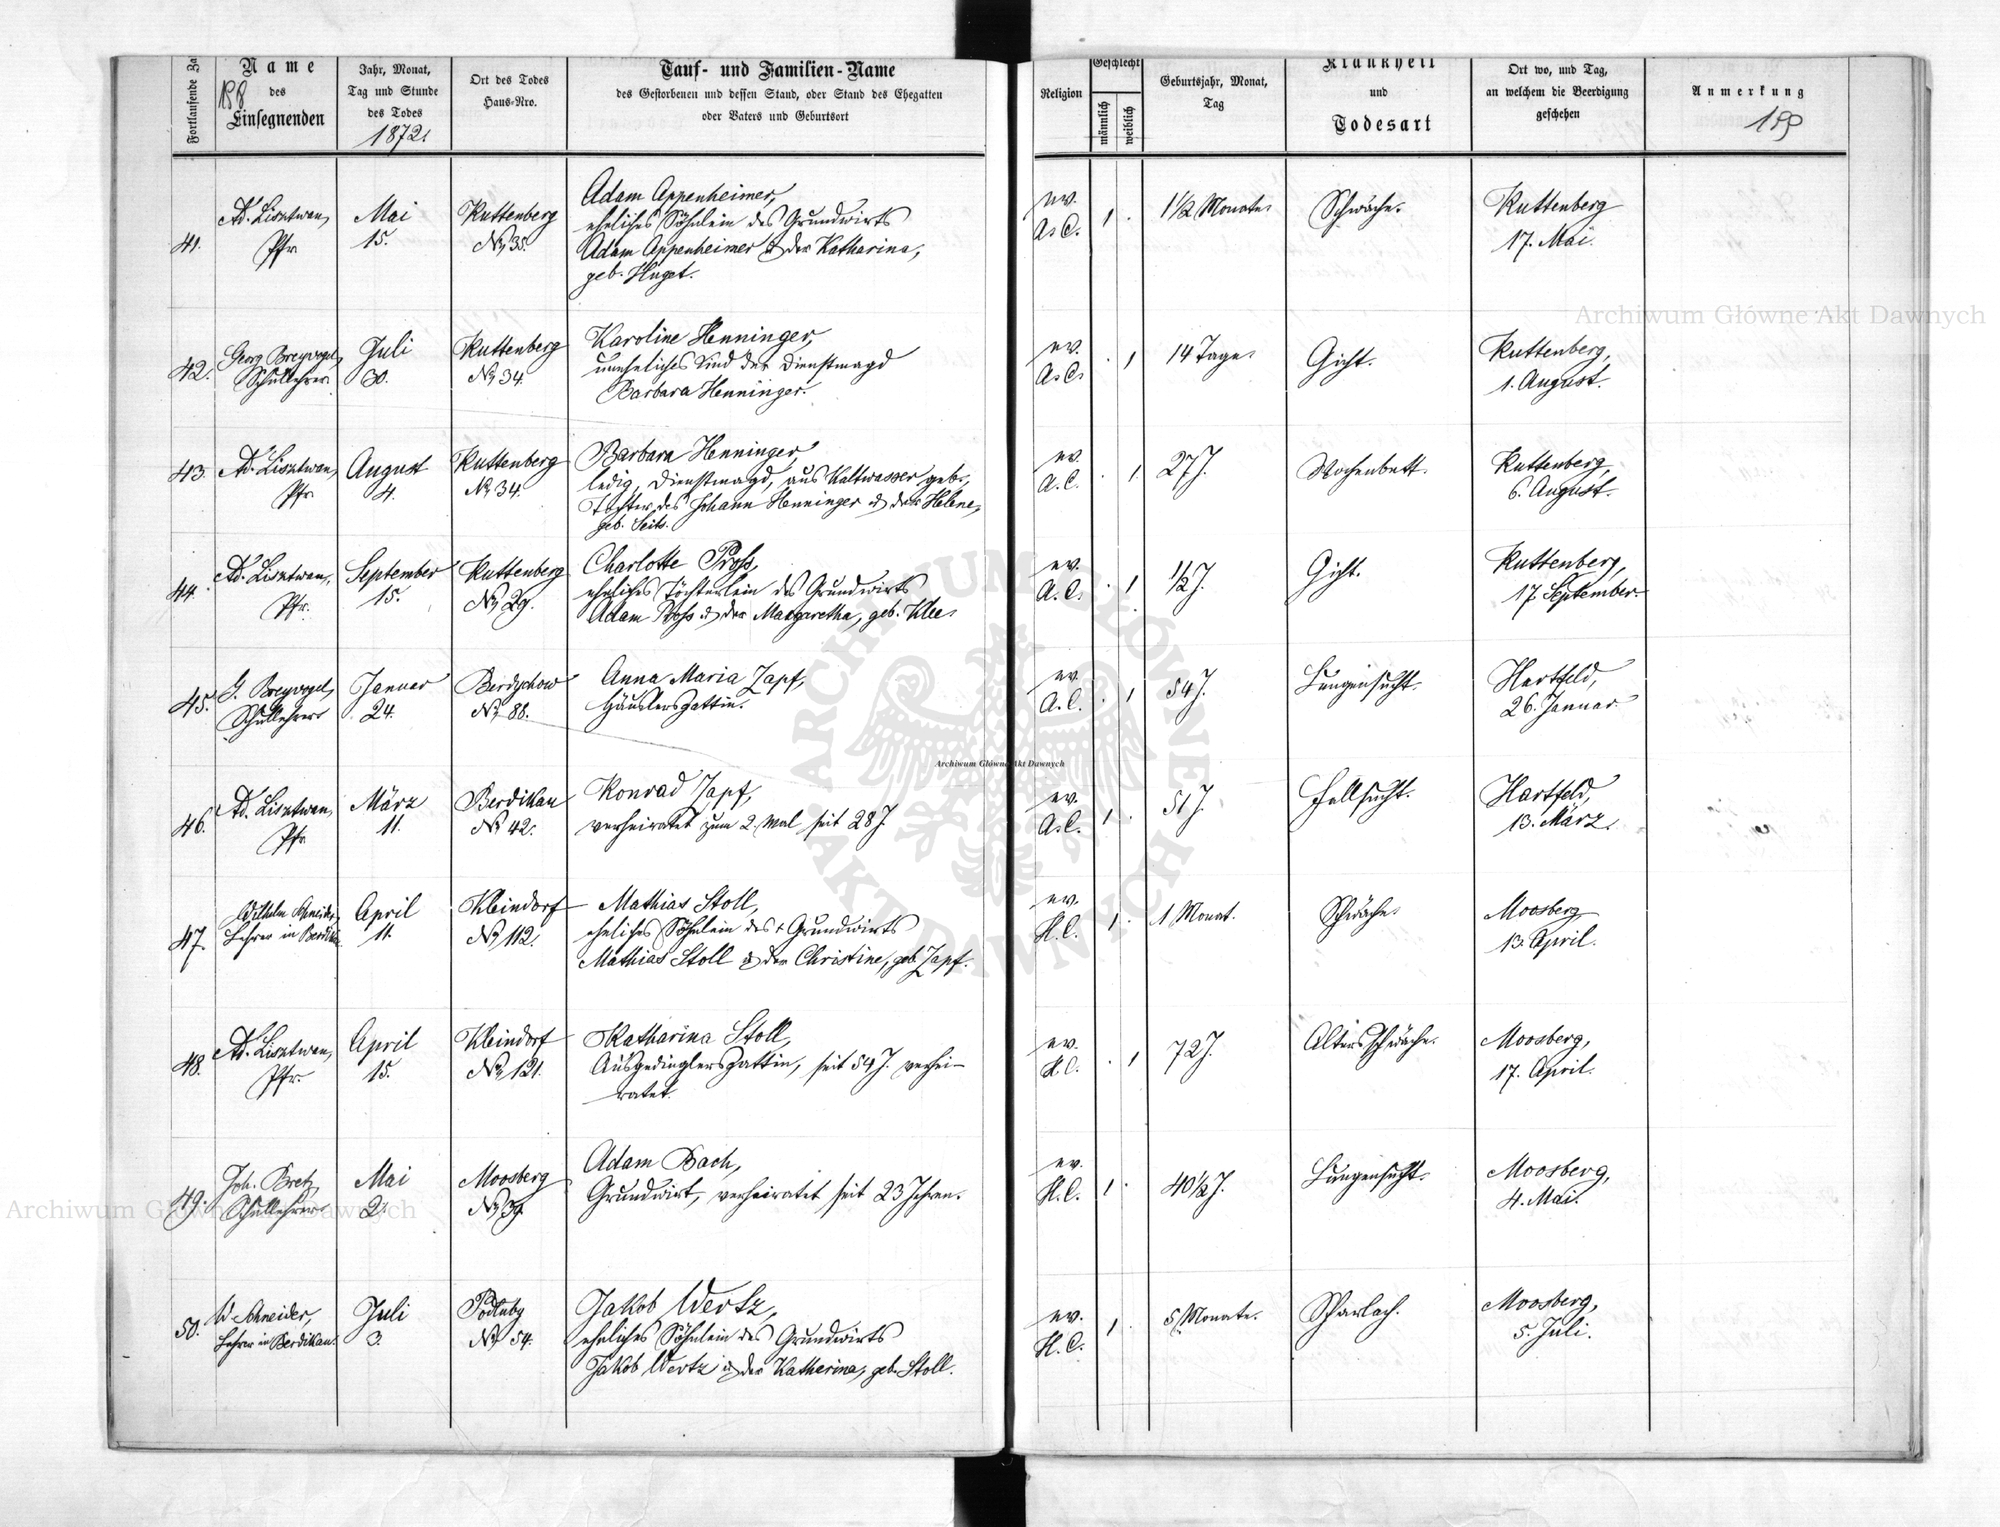 Fortlaufende Za
Name
des
Einsegnenden
188
Jahr, Monat,
Tag und Stunde
des Todes
1872.
Ort des Todes
Haus-Nro.
Tauf- und Familien-Name
des Gestorbenen und dessen Stand, oder Stand des Ehegatten
oder Vaters und Geburtsort
Religion
Geschlecht
männlich
weiblich
Geburtsjahr, Monat,
Tag
Krankheit
und
Todesart
Ort wo, und Tag,
an welchem die Beerdigung
geschehen
Anmerkung
41.
Ad. Lisztwan,
Pfr.
Mai
15.
Kuttenberg
No 35.
Adam Appenheimer,
eheliches Söhnlein des Grundwirts
Adam Appenheimer u. der Katharina,
geb. Huget.
ev.
A. C.
1 .
1 1/2 Monate.
Schwäche.
Kuttenberg
17. Mai.
42.
Georg Breyvogel,
Schullehrer
Juli
30.
Kuttenberg
No 34.
Karoline Henninger,
uneheliches Kind der Dienstmagd
Barbara Henninger.
ev.
A. C.
. 1
14 Tage.
Gicht.
Kuttenberg,
1. August.
43.
Ad. Lisztwan,
Pfr.
August
4.
Kuttenberg
No 34.
Barbara Henninger,
ledig, Dienstmagd, aus Kaltwasser geb.,
Tochter des Johann Henninger u. der Helene,
geb. Seitz.
ev.
A. C.
. 1
27 J.
Wochenbett.
Kuttenberg,
6. August.
44.
Ad. Lisztwan,
Pfr.
September
15.
Kuttenberg
No 29.
Charlotte Proß,
eheliches Töchterlein des Grundwirts
Adam Proß u. der Margaretha, geb. Klee.
ev.
A. C.
. 1
1/2 J.
Gicht.
Kuttenberg,
17. September.
45.
G. Breyvogel,
Schullehrer
Januar
24.
Berdychow
No 88.
Anna Maria Zapf,
Häuslersgattin.
ev.
A. C.
. 1
54 J.
Lungensucht.
Hartfeld,
26. Januar.
46.
Ad. Lisztwan,
Pfr.
März
11.
Berdikau
No 42.
Konrad Zapf,
verheiratet zum 2. Mal seit 28 J.
ev.
A. C.
1 .
51 J.
Fallsucht.
Hartfeld,
13. März.
47.
Wilhelm Schneider,
Lehrer in Berdikau
April
11.
Kleindorf
No 112.
Mathias Stoll,
eheliches Söhnlein des + Grundwirts
Mathias Stoll u. der Christine, geb. Zapf.
ev.
H. C.
1 .
1 Monat.
Schwäche.
Moosberg
13. April.
48.
Ad. Lisztwan,
Pfr.
April
15.
Kleindorf
No 121.
Katharina Stoll,
Ausgedinglersgattin, seit 54 J. verhei-
ratet.
ev.
H. C.
. 1
72 J.
Altersschwäche.
Moosberg,
17. April.
49.
Joh. Bretz,
Schullehrer
Mai
2.
Moosberg
No 39.
Adam Bach,
Grundwirt, verheiratet seit 23 Jahren.
ev.
H. C.
1 .
40 1/2 J.
Lungensucht.
Moosberg,
4. Mai.
50.
W. Schneider,
Lehrer in Berdikau.
Juli
3.
Podluby
No 54.
Jakob Wertz,
eheliches Söhnlein des Grundwirts
Jakob Wertz u. der Katharina, geb. Stoll.
ev.
H. C.
1 .
5 Monate.
Scharlach.
Moosberg,
5. Juli.
Archiwum Główne Akt Dawnych
Archiwum Główne Akt Dawnych
Archiwum Główne Akt Dawnych
ARCHIWUM GŁÓWNE AKT DAWNYCH